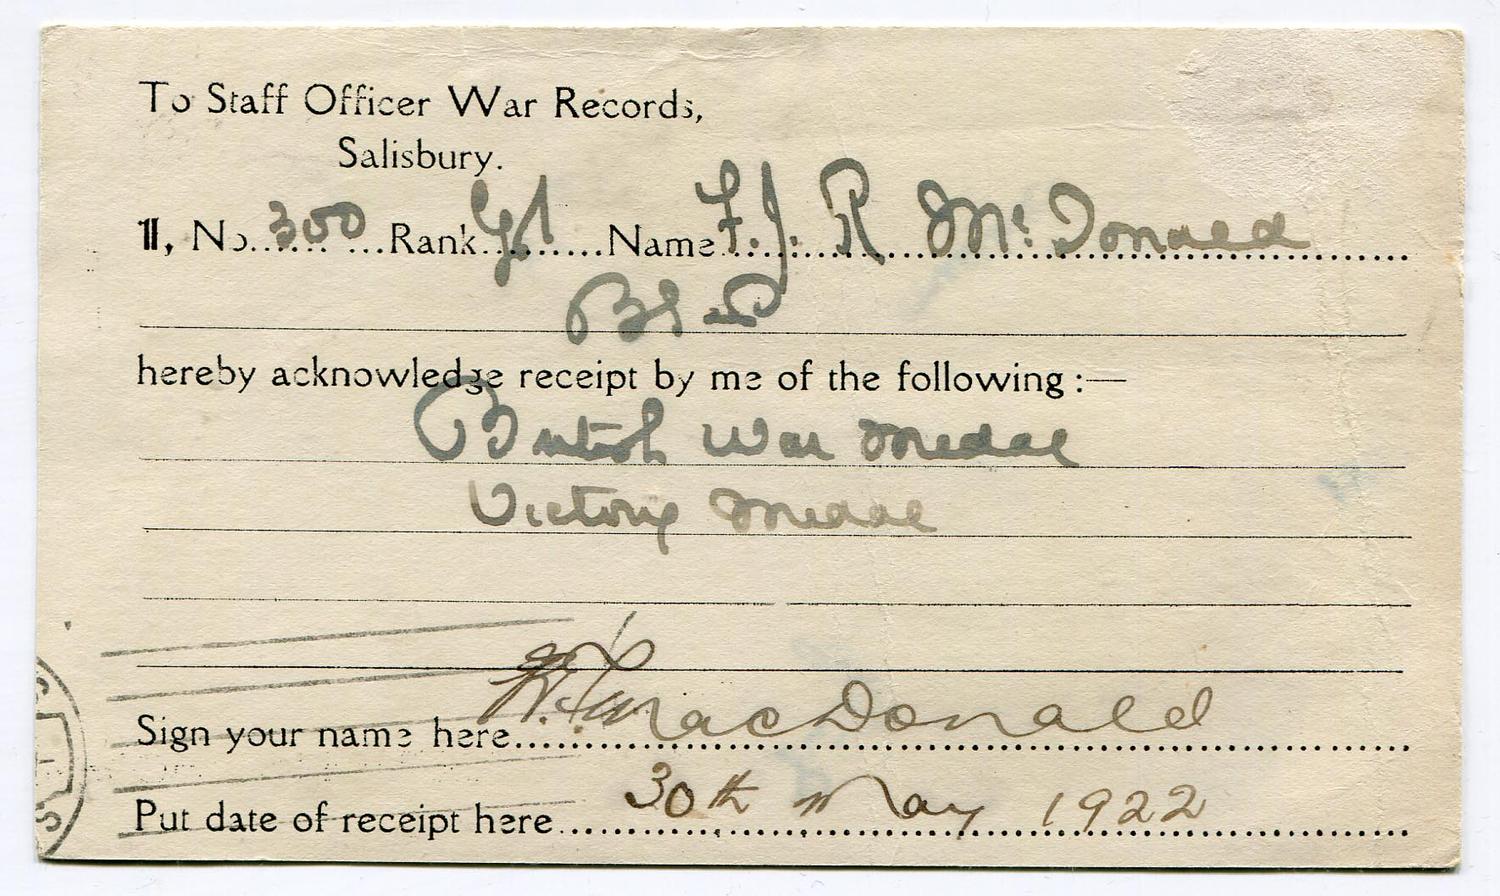 To Staff Officer War Records,
Salisbury.
I, No. 300 Rank Sgt Name F. J. R McDonald
BSAP
hereby acknowledge receipt by me of the following :—
British War Medal
Victory Medal
MacDonald
Sign your name here
30th May 1922
Put date of receipt here